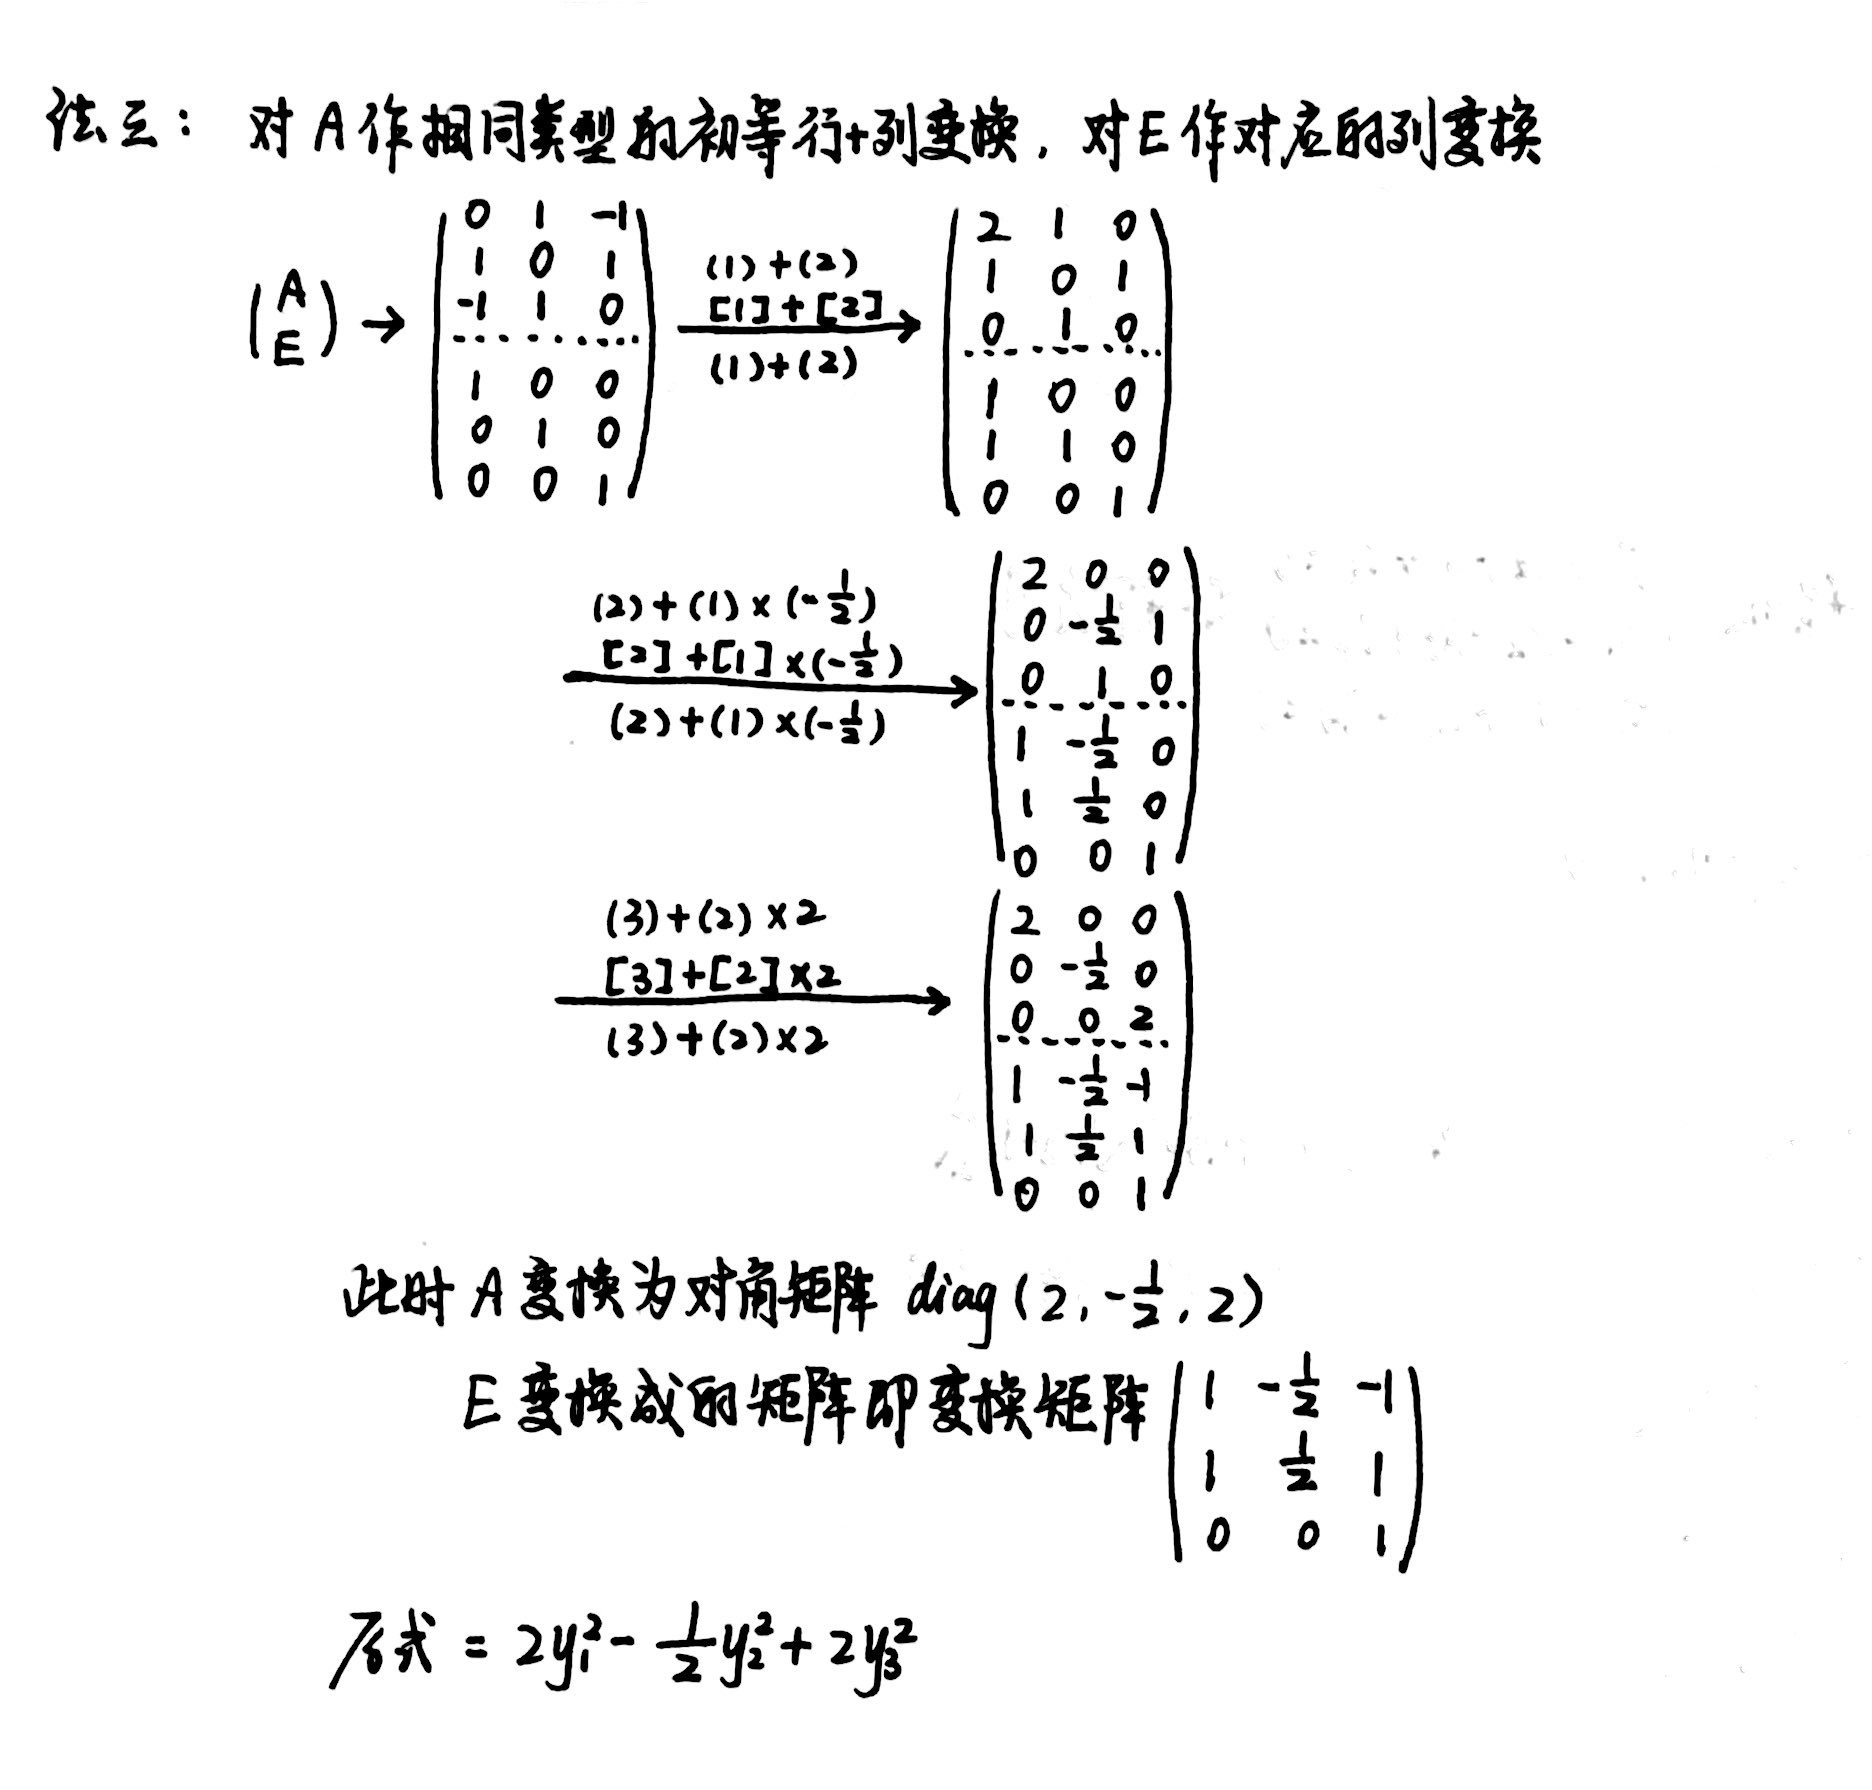 法三： 对A作相同类型的初等行+列变换，对E作对应的列变换
(A E) → ( 0 1 -1 ; 1 0 1 ; -1 1 0 ; 1 0 0 ; 0 1 0 ; 0 0 1 ) (1)+(2) [1]+[2] (1)+(2) → ( 2 1 0 ; 1 0 1 ; 0 1 0 ; 1 0 0 ; 1 1 0 ; 0 0 1 )
(2)+(1)×(-1/2) [2]+[1]×(-1/2) (2)+(1)×(-1/2) → ( 2 0 0 ; 0 -1/2 1 ; 0 1 0 ; 1 -1/2 0 ; 1 1/2 0 ; 0 0 1 )
(3)+(2)×2 [3]+[2]×2 (3)+(2)×2 → ( 2 0 0 ; 0 -1/2 0 ; 0 0 2 ; 1 -1/2 -1 ; 1 1/2 1 ; 0 0 1 )
此时A变换为对角矩阵 diag(2, -1/2, 2)
E变换成的矩阵即变换矩阵 ( 1 -1/2 -1 ; 1 1/2 1 ; 0 0 1 )
原式 = 2y₁² - 1/2 y₂² + 2y₃²